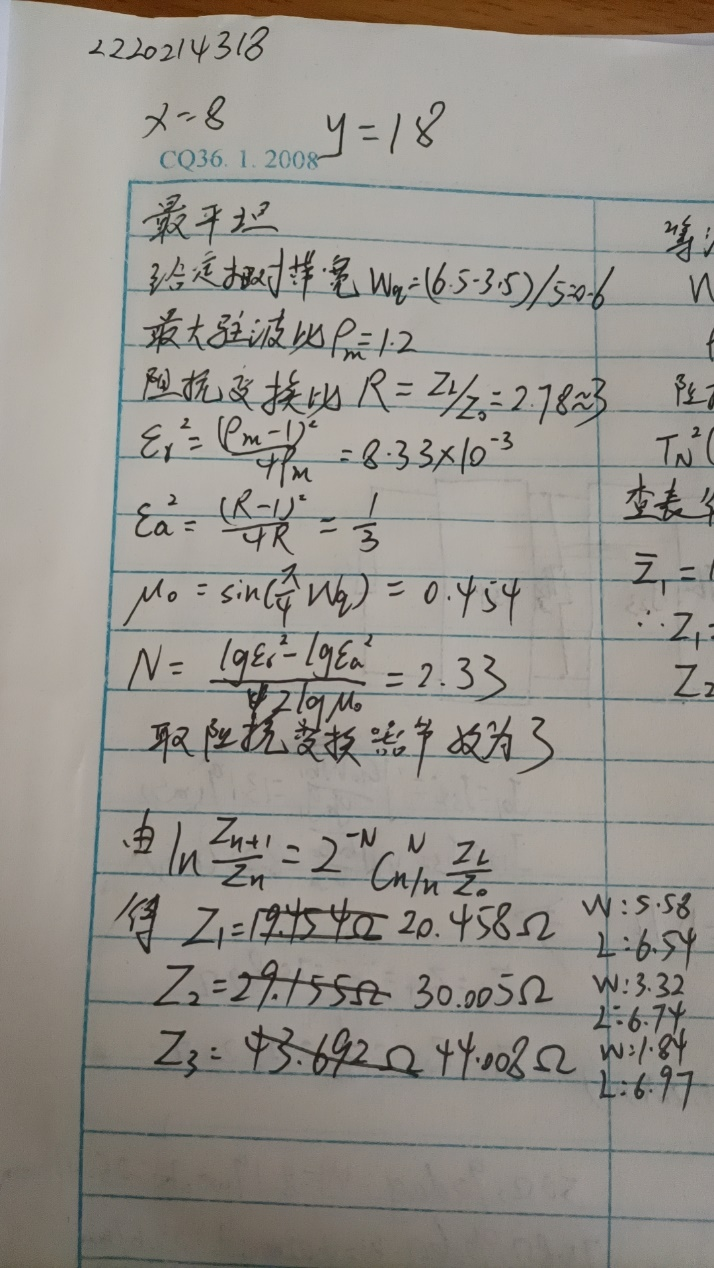 2220214318
x=8 y=18
CQ36.1.2008
最平坦
给定相对带宽 Wq=(6.5-3.5)/5=0.6
最大驻波比 ρm=1.2
阻抗变换比 R=ZL/Z0=2.78≈3
εr²=(ρm-1)²/4ρm=8.33×10⁻³
εa²=(R-1)²/4R=1/3
μ0=sin(π/4 Wq)=0.454
N=(lgεr²-lgεa²)/2lgμ0=2.33
取阻抗变换器节数为3
由 ln Zn+1/Zn=2^-N Cn^N ln ZL/Z0
得 Z1=19.454Ω 20.458Ω
Z2=29.155Ω 30.005Ω
Z3=43.692Ω 44.008Ω
W:5.58
L:6.54
W:3.32
L:6.74
W:1.84
L:6.97
等
W
阻
TN²(
查表
Z̄1=1
∴Z1=
Z2